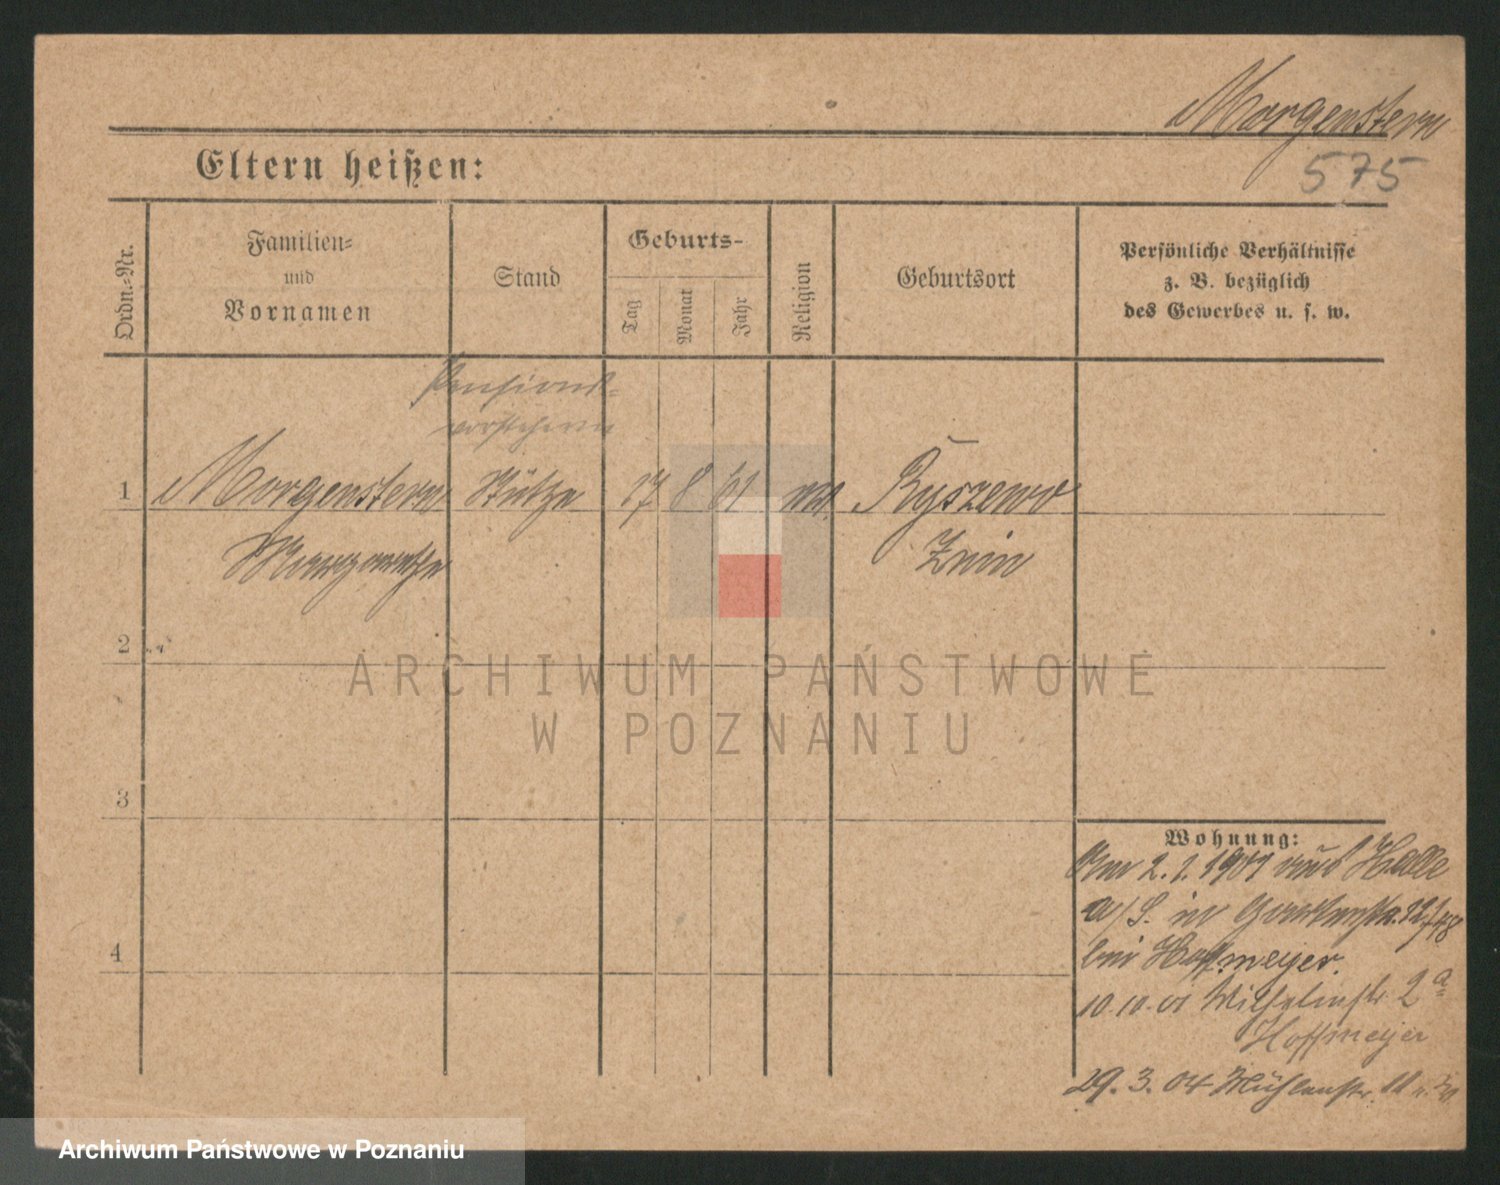 Morgenstern
575
Eltern heißen:
Ordn.-Nr.
Familien-
und
Vornamen
Stand
Geburts-
Tag
Monat
Jahr
Religion
Geburtsort
Persönliche Verhältnisse
z. B. bezüglich
des Gewerbes u. s. w.
Pensions-
vorsteherin
1 Morgenstern Stütze 17 8 61 Ryszewo
Margarethe Znin
2
3
4
Wohnung:
Am 2. 1. 1901 aus Halle
a/S. in Gartenstr.
bei Hoffmeyer.
10.10.01 Wilhelmstr. 2a
Hoffmeyer
29.3.04 Mühlenstr. 11
ARCHIWUM PAŃSTWOWE
W POZNANIU
Archiwum Państwowe w Poznaniu